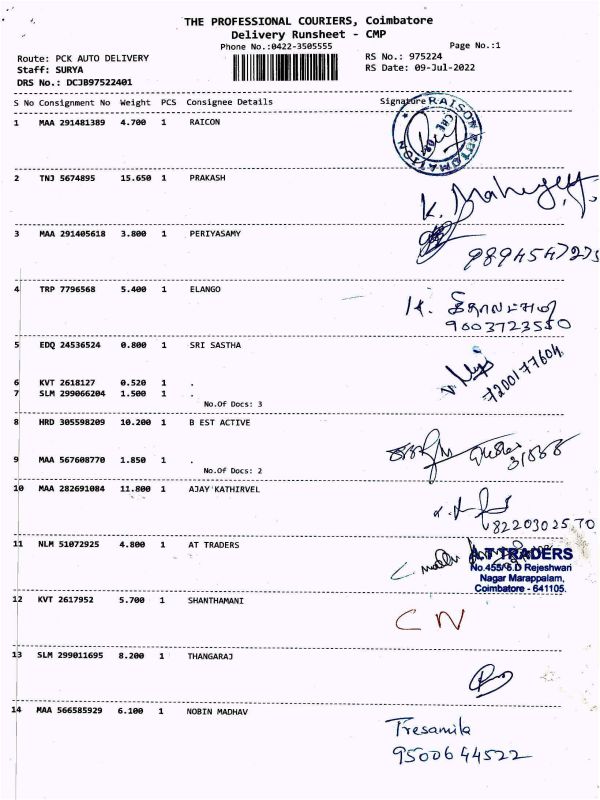 THE PROFESSIONAL COURIERS, Coimbatore
Delivery Runsheet - CMP
Phone No.:0422-3505555
Page No.:1
Route: PCK AUTO DELIVERY
RS No.: 975224
Staff: SURYA
RS Date: 09-Jul-2022
DRS No.: DCJB97522401
S No Consignment No Weight PCS Consignee Details Signature
1 MAA 291481389 4.700 1 RAICON
RAISON AUTOMATION
2 TNJ 5674895 15.650 1 PRAKASH
K.
3 MAA 291405618 3.800 1 PERIYASAMY
4 TRP 7796568 5.400 1 ELANGO
9003723550
5 EDQ 24536524 0.800 1 SRI SASTHA
7200177604
6 KVT 2618127 0.520 1 .
7 SLM 299066204 1.500 1 .
No.Of Docs: 3
8 HRD 305598209 10.200 1 B EST ACTIVE
9 MAA 567608770 1.850 1 .
No.Of Docs: 2
10 MAA 282691084 11.800 1 AJAY KATHIRVEL
8220302570
11 NLM 51072925 4.800 1 AT TRADERS
A.T TRADERS
No.455/6.D Rejeshwari
Nagar Marappalam,
Coimbatore - 641105.
12 KVT 2617952 5.700 1 SHANTHAMANI
CN
13 SLM 299011695 8.200 1 THANGARAJ
14 MAA 566585929 6.100 1 NOBIN MADHAV
Tresamila
9500644522